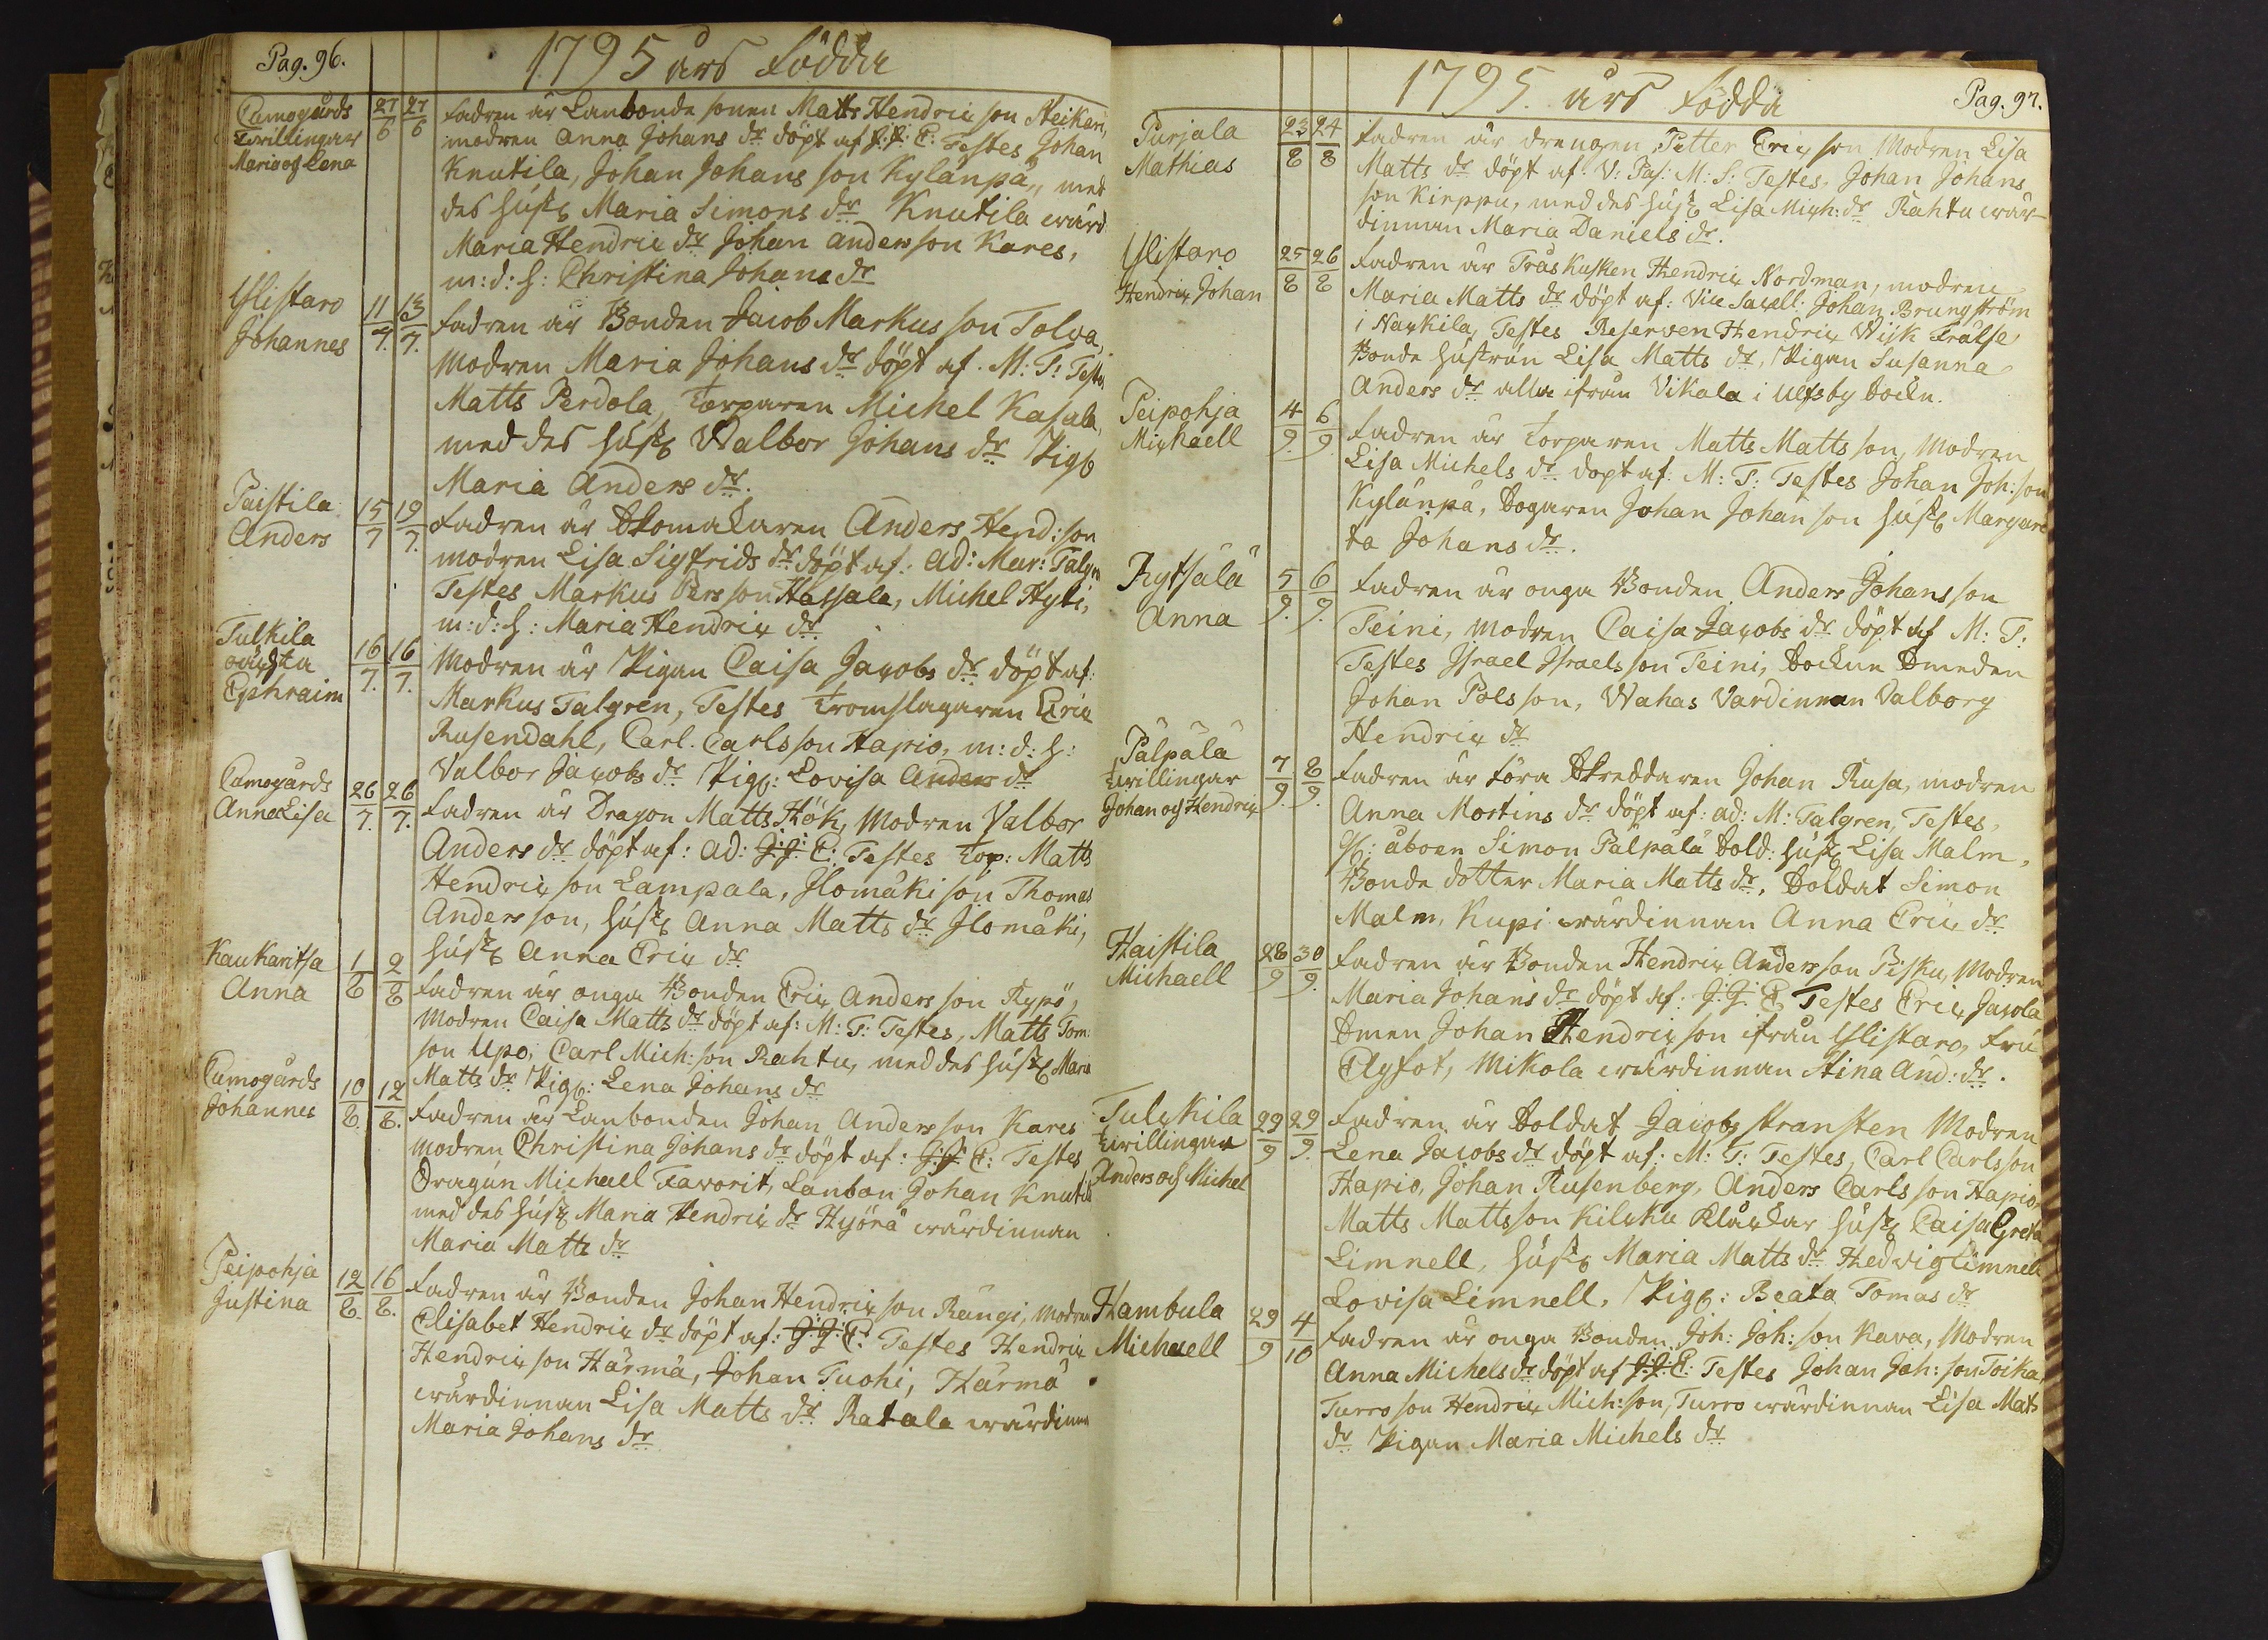 Pag. 96.
1795 års födda
Cumogårds
Tvillingar
Maria och Lena
27/6 27/6
fadren är Lanbonde sonen Matts Hendric son Heikari,
modren Anna Johans dr döpt af J: J: E: Testes Johan
Knutila, Johan Johans son Kylänpä, med
des hust Maria Simons dr Knutila wärd
Maria Hendric dr Johan Anderson Kares,
m: d: h: Christina Johans dr
Ylistaro
Johannes
11/7. 13/7.
fadren är Bonden Jacob Markus son Tolva,
modren Maria Johans dr döpt af M: T: Testes
Matts Perdola, Torparen Michel Kasala,
med des hust Walbor Johans dr Pig
Maria Anders dr.
Paistila
Anders
15/7 19/7.
fadren är Skomakaren Anders Hend: son
modren Lisa Sigfrids dr döpt af: ad: Mar: Talgr
Testes Markus Pers son Hassala, Michel Hyti,
m: d: h: Maria Hendric dr
Tulkila
Ephraim
16/7. 16/7.
Modren är Pigan Caisa Jacobs dr döpt af:
Markus Talgren, Testes Tromslagaren Eric
Rusendahl, Carl Carlsson Hapio, m: d: h:
Valbor Jacobs dr Pig: Lovisa Anders dr
Cumogårds
Anna Lisa
26/7. 26/7.
fadren är Dragon Matts Hök, Modren Valbor
Anders dr döpt af: ad: J: J: E: Testes Torp: Matts
Hendric son Lampala, Ilomäki son Thomas
Anderson, hust Anna Matts dr Ilomäki,
hust Anna Eric dr
Kaukaritsa
Anna
1/8 2/8
fadren är onga Bonden Eric Anders son Rypö,
Modren Caisa Matts dr döpt af: M: T: Testes, Matts Tom:
son Upo, Carl Mich: son Rahtu, med des hust Maria
Matts dr Pig: Lena Johans dr
Cumogårds
Johannes
10/8. 12/8.
fadren är Lanbonden Johan Anders son Kares
modren Christina Johans dr döpt af: J: J: E: Testes
Dragun Michaell Favorit, Lanbon Johan Knutila
med des hust Maria Hendric dr Hyörä wärdinnan
Maria Matts dr
Peipohja
Justina
12/8. 16/8.
fadren är Bonden Johan Hendric son Rängi, modren
Elisabet Hendric dr döpt af: J: J: E: Testes Hendric
Hendric son Härmä, Johan Tuohi, Härmä
wärdinnan Lisa Matts dr Ratala wärdinna
Maria Johans dr
1795. års födda
Pag. 97.
Purjala
Mathias
23/8 24/8
fadren är drengen Petter Eric son Modren Lisa
Matts dr döpt af: V: Pas: M: S: Testes, Johan Johans
son Kirppu, med des hust Lisa Mich: dr Rahtu wär-
dinnan Maria Daniels dr.
Ylistaro
Hendric Johan
25/8 26/8
fadren är Träskusken Hendric Nordman, modren
Maria Matts dr döpt af: Vice Sacell: Johan Brungström
i Nackila, Testes Reserven Hendric Wijk Frälse
Bonde hustrun Lisa Matts dr, Pigan Susanna
Anders dr alla ifrån Vikala i Ulfsby Sockn.
Peipohja
Michaell
4/9. 6/9.
fadren är Torparen Matts Matts son, modren
Lisa Michels dr döpt af: M: T: Testes Johan Joh: son
Kylänpä, Sogaren Johan Johan son hust Margare
ta Johans dr.
Rytsälä
Anna
5/9. 6/9.
fadren är onga Bonden Anders Johansson
Teini, modren Caisa Jacobs dr döpt af M: T:
Testes Israel Israels son Teini, Sockne Smeden
Johan Polsson, Wahas Vardinnan Valborg
Hendric dr
Pälpälä
Tvillingar
Johan och Hendric
7/9. 8/9.
fadren är förra Skreddaren Johan Rusa, modren
Anna Mortins dr döpt af: ad: M: Talgren, Testes,
åboen Simon Pälpälä Sold: hust Lisa Malm,
Bonde dotter Maria Matts dr, Soldat Simon
Malm, Kupi wärdinnan Anna Eric dr
Haistila
Michaell
28/9 30/9.
fadren är Bonden Hendric Anders son Pisku, modren
Maria Johans dr döpt af: J: J: E Testes Eric Jacola
Smen Johan Hendric son ifrån Ylistaro, fru
Elgfot, Mikola wärdinnan Stina And: dr.
Tulckila
Tvillingar
Anders och Michel
29/9 29/9.
fadren är Soldat Jacob Stransten Modren
Lena Jacobs dr döpt af: M: T: Testes, Carl Carlsson
Hapio, Johan Rusenberg, Anders Carls son Hapio,
Matts Mattsson Kilcku Klåckar hust Caisa Greta
Limnell, hust Maria Matts dr Hedvig Limnell
Lovisa Limnell, Pig: Beata Tomas dr
Hambula
Michaell
29/9 4/10
fadren är onga Bonden Joh: Joh: son Kava, Modren
Anna Michels dr döpt af J: J: E: Testes Johan Joh: son Toika,
Turro son Hendric Mich: son, Turro wärdinnan Lisa Mats
dr Pigan Maria Michels dr